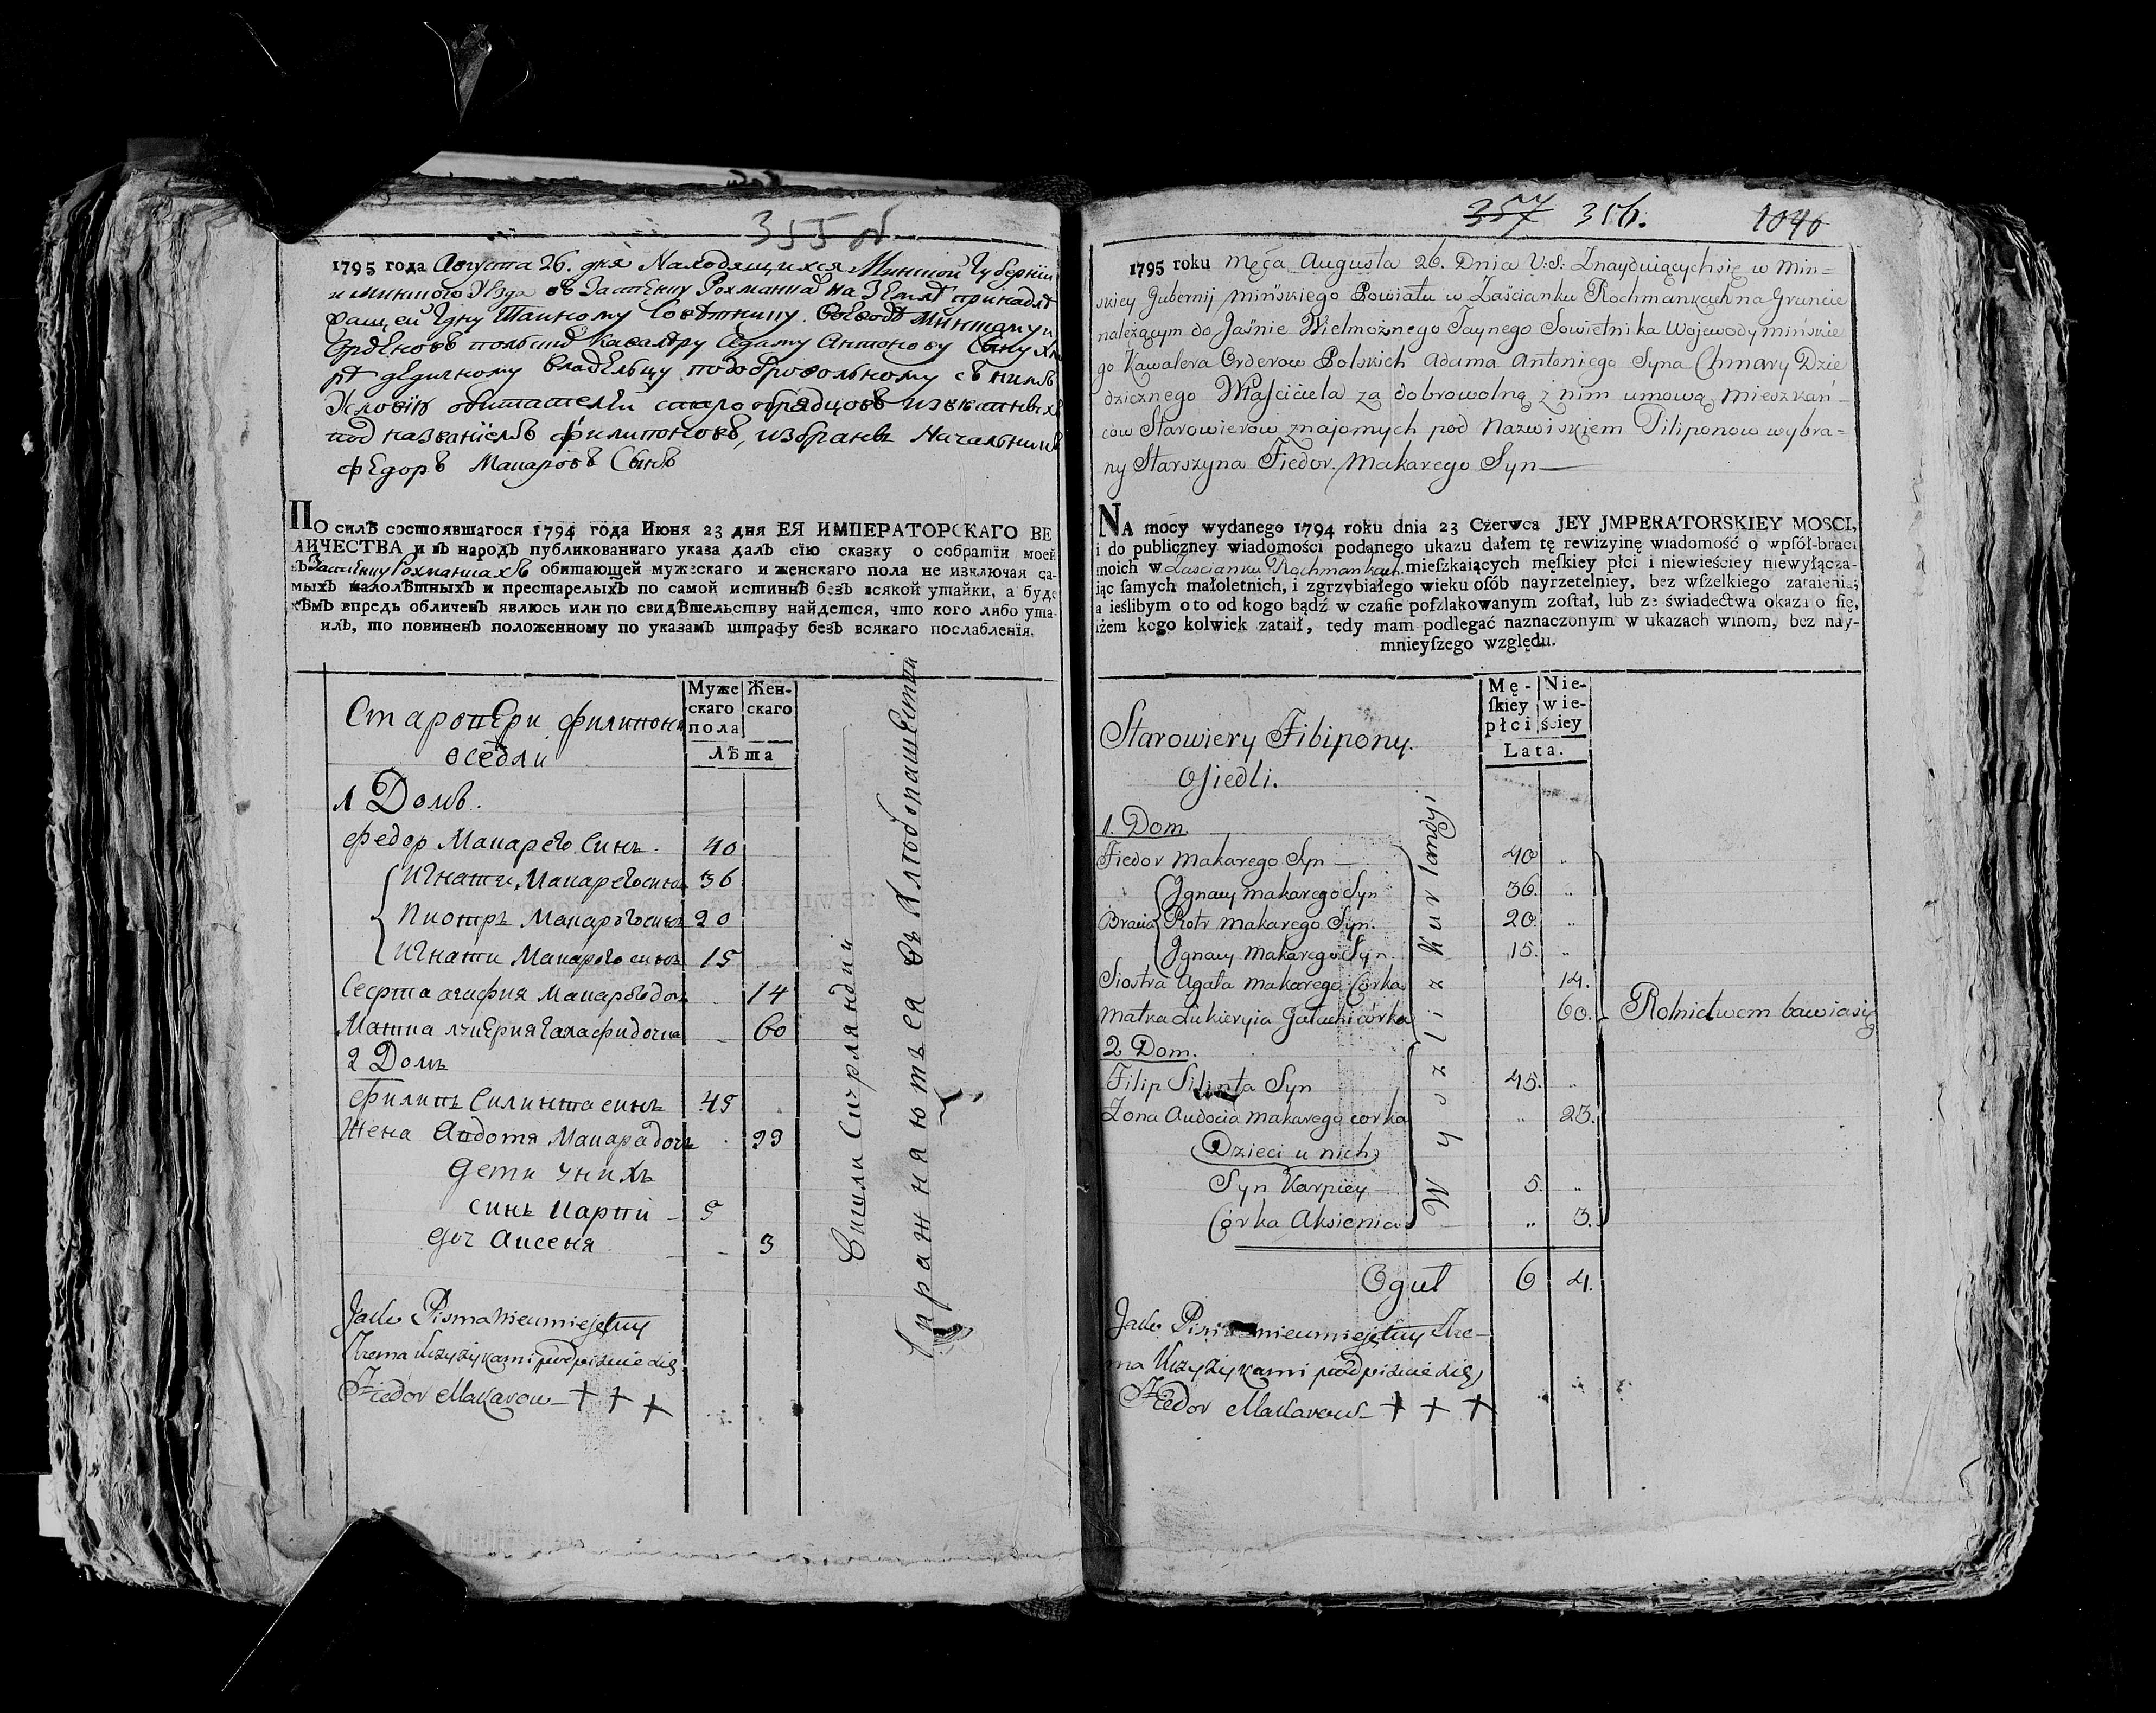 355 об
1795 года Августа 26. дня Находящихся Минской Губернии
и Минского Уезда въ Застенку Рохманках на Землѣ принадле
жащей Тайному Совѣтнику Воеводѣ Минскому и
Орденовъ польскихъ Кавалеру Адаму Антонову Сыну Хма
рѣ дедичному владѣльцу по добровольному съ нимъ
Условію обитателей старообрядцовъ
под названіемъ филипоновъ, избранъ Начальникъ
федоръ Макаровъ Сынъ
ПО силѣ состоявшагося 1794 года Июня 23 дня ЕЯ ИМПЕРАТОРСКАГО ВЕ
ЛИЧЕСТВА и въ народъ публикованнаго указа далъ сїю сказку о собратїи моей
въ Застенку Рохманкахъ обитающей мужескаго и женскаго пола не изключая са-
мыхъ малолѣтныхъ и престарелыхъ по самой истиннѣ безъ всякой утайки, а буде
кѣмъ впредь обличенъ явлюсь или по свидѣтельству найдется, что кого либо ута-
илъ, то повиненъ положенному по указамъ штрафу безъ всякаго послабленїя.
Муже
скаго
пола
Жен-
скаго
Лѣта
Староверы филипони
оседли
1 Домъ.
федор Макарего Синъ. 40
Игнати Макарего синъ 36
Пиотръ Макарего синъ 20
Игнати Макарего синъ 15
Сестра агафия Макарего доч 14
Матка лукерия Галафи дочка 60
2 Домъ
филипъ Силинта синъ 45
жена Авдотя Макара дочъ 23
дети у нихъ
синъ Карпи 5
доч Аксеня 3
Jako Pisma nieumiejętny
Trema Krzyżykami podpisuie się
Fiedor Makarow + + +
357 356. 1040
1795 roku Męca Augusta 26. Dnia V: S: Znayduiącychsię w Min=
skiey Gubernij Mińskiego Powiatu w Zaścianku Rochmankach na Gruncie
należącym do Jaśnie Wielmożnego Taynego Sowietnika Wojewody Mińskie
go Kawalera Orderow Polskich Adama Antoniego Syna Chmary Dzie
dzicznego Właściciela za dobrowolną z nim umową mieszkań-
ców Starowierow znajomych pod Nazwiskiem Filiponow wybra=
ny Starszyna Fiedor Makarego Syn
NA mocy wydanego 1794 roku dnia 23 Czerwca JEY JMPERATORSKIEY MOSCI,
i do publiczney wiadomości podanego ukazu dałem tę rewizyinę wiadomość o wpſół-braci
moich w Zascianku Rochmankach mieſzkaiących męſkiey płci i niewieściey niewyłącza-
iąc ſamych małoletnich, i zgrzybiałego wieku osób nayrzetelniey, bez wſzelkiego zataienia;
a ieślibym o to od kogo bądź w czaſie poſzlakowanym zoſtał, lub ze świadectwa okazało ſię,
iżem kogo kolwiek zataił, tedy mam podlegać naznaczonym w ukazach winom, bez nay-
mnieyſzego względu.
Mę-
ſkiey
płci
Nie-
wie-
ściey
Lata.
Starowiery Filipony.
Osiedli.
1. Dom
Fiedor Makarego Syn 40
Jgnacy Makarego Syn 36.
Bracia Piotr Makarego Syn. 20.
Jgnacy Makarego Syn. 15.
Siostra Agata Makarego Córka 14.
Matka Łukieryia Galachi córka 60.
Rolnictwem bawią się
2 Dom.
Filip Silinta Syn 45.
Zona Audocia Makarego corka 23.
Dzieci u nich
Syn Karpiey 5.
Córka Aksienia 3.
Wyszli z Kurlandyi
Oguł 6 4.
Jako Pisma nieumiejętny Tre-
ma Krzyżykami podpisuie się
Fiedor Makarow + + +